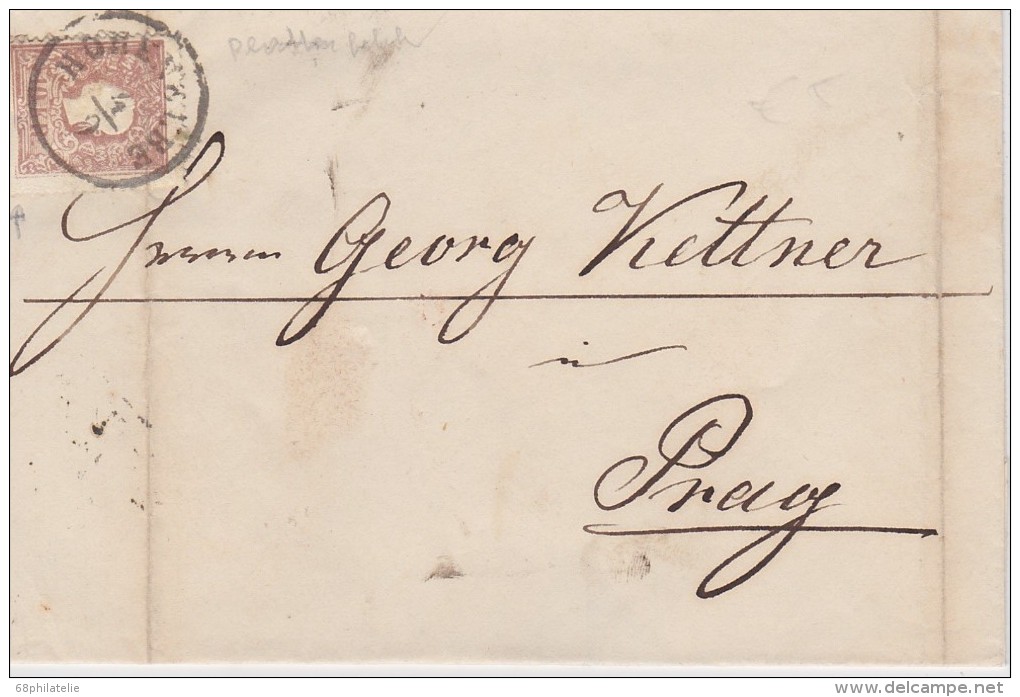 HOHENELBE
Herrn Georg Kettner
in
Prag
68philatelie
delcampe.net